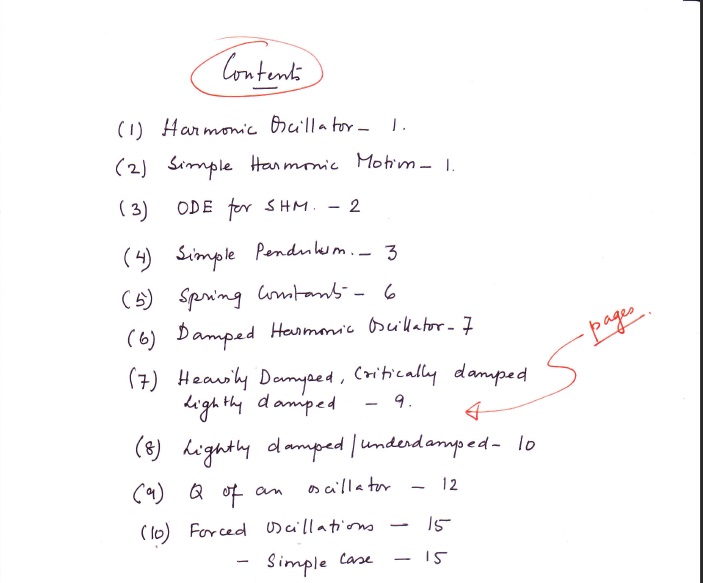 Contents
(1) Harmonic Oscillator - 1.
(2) Simple Harmonic Motion - 1.
(3) ODE for SHM. - 2
(4) Simple Pendulum. - 3
(5) Spring Constant - 6
(6) Damped Harmonic Oscillator - 7
pages.
(7) Heavily Damped, Critically damped
Lightly damped - 9.
(8) Lightly damped/underdamped - 10
(9) Q of an oscillator - 12
(10) Forced Oscillations - 15
- Simple Case - 15